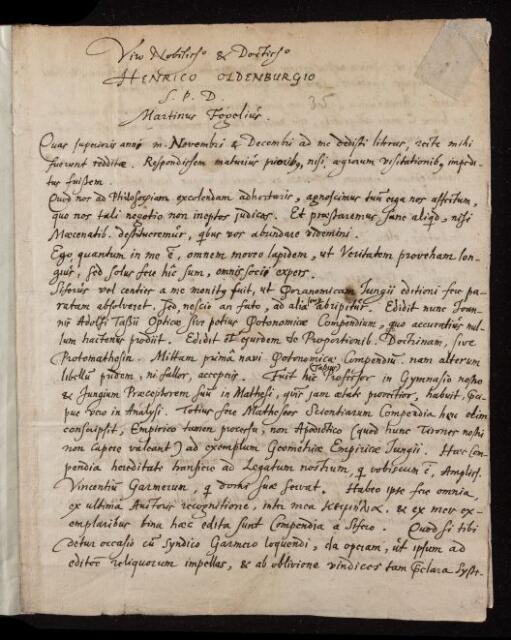 Viro Nobilissº & Doctissº
HENRICO OLDENBURGIO
S. P. D
35
Martinus Fogelius.
Quas superioris anni m. Novembri & Decembri ad me dedisti literas, recte mihi
fuerunt redditæ. Respondissem maturius priorib, nisi ægrorum visitationib, impedi-
tus fuissem.
Quod nos ad Philosophiam excolendam adhortaris, agnoscimus tuū erga nos affectum,
quo nos tali negotio non ineptos judicas. Et præstaremus sane aliqd, nisi
Mæcenatib. destitueremur, qbus vos abundare videmini.
Ego quantum in me ē, omnem moveo lapidem, ut Veritatem proveham lon-
gius, sed solus fere hîc sum, omnis socii expers.
Siferus vel centies a me monitq fuit, ut Phoranomicam Jungii editioni fere pa-
ratam absolveret. Sed, nescio an fato, ad alia semp abripitur. Edidit nunc Joan-
nis Adolfi Tassii Opticæ sive potius Photonomicæ Compendium, quo accuratius nul-
lum hactenus prodiit. Edidit et ejusdem de Proportionib. Doctrinam, sive
Protomathesin. Mittam primâ navi Photonomicæ Compendiū. nam alterum
libellū pridem, ni fallor, accepistis. Fuit hic Tassius Professor in Gymnasio nostro
& Jungium Præceptorem suū in Mathesi, qvis jam ætate provectior, habuit, præci-
pue vero in Analysi. Totius fere Matheseos Scientiarum Compendia heic olim
conscripsit, Empirico tamen processu, non Apodictico (quod hunc Tirones nostri
non capere valeant) ad exemplum Geometriæ Empiricæ Jungii. Hæc Com-
pendia hereditate transiere ad Legatum nostrum, q vobiscum ē, Ampliss.
Vincentiū Garmerum, q domi suæ servat. Habeo ipse fere omnia,
ex ultimâ Autoris recognitione, inter mea κειμήλια. & ex meis ex-
emplaribus bina hæc edita sunt Compendia a Sifero. Quod si tibi
detur occasio cū Syndico Garmero loquendi, da operam, ut ipsum ad
editoē reliquorum impellas, & ab oblivione vindices tam præclara Syste-